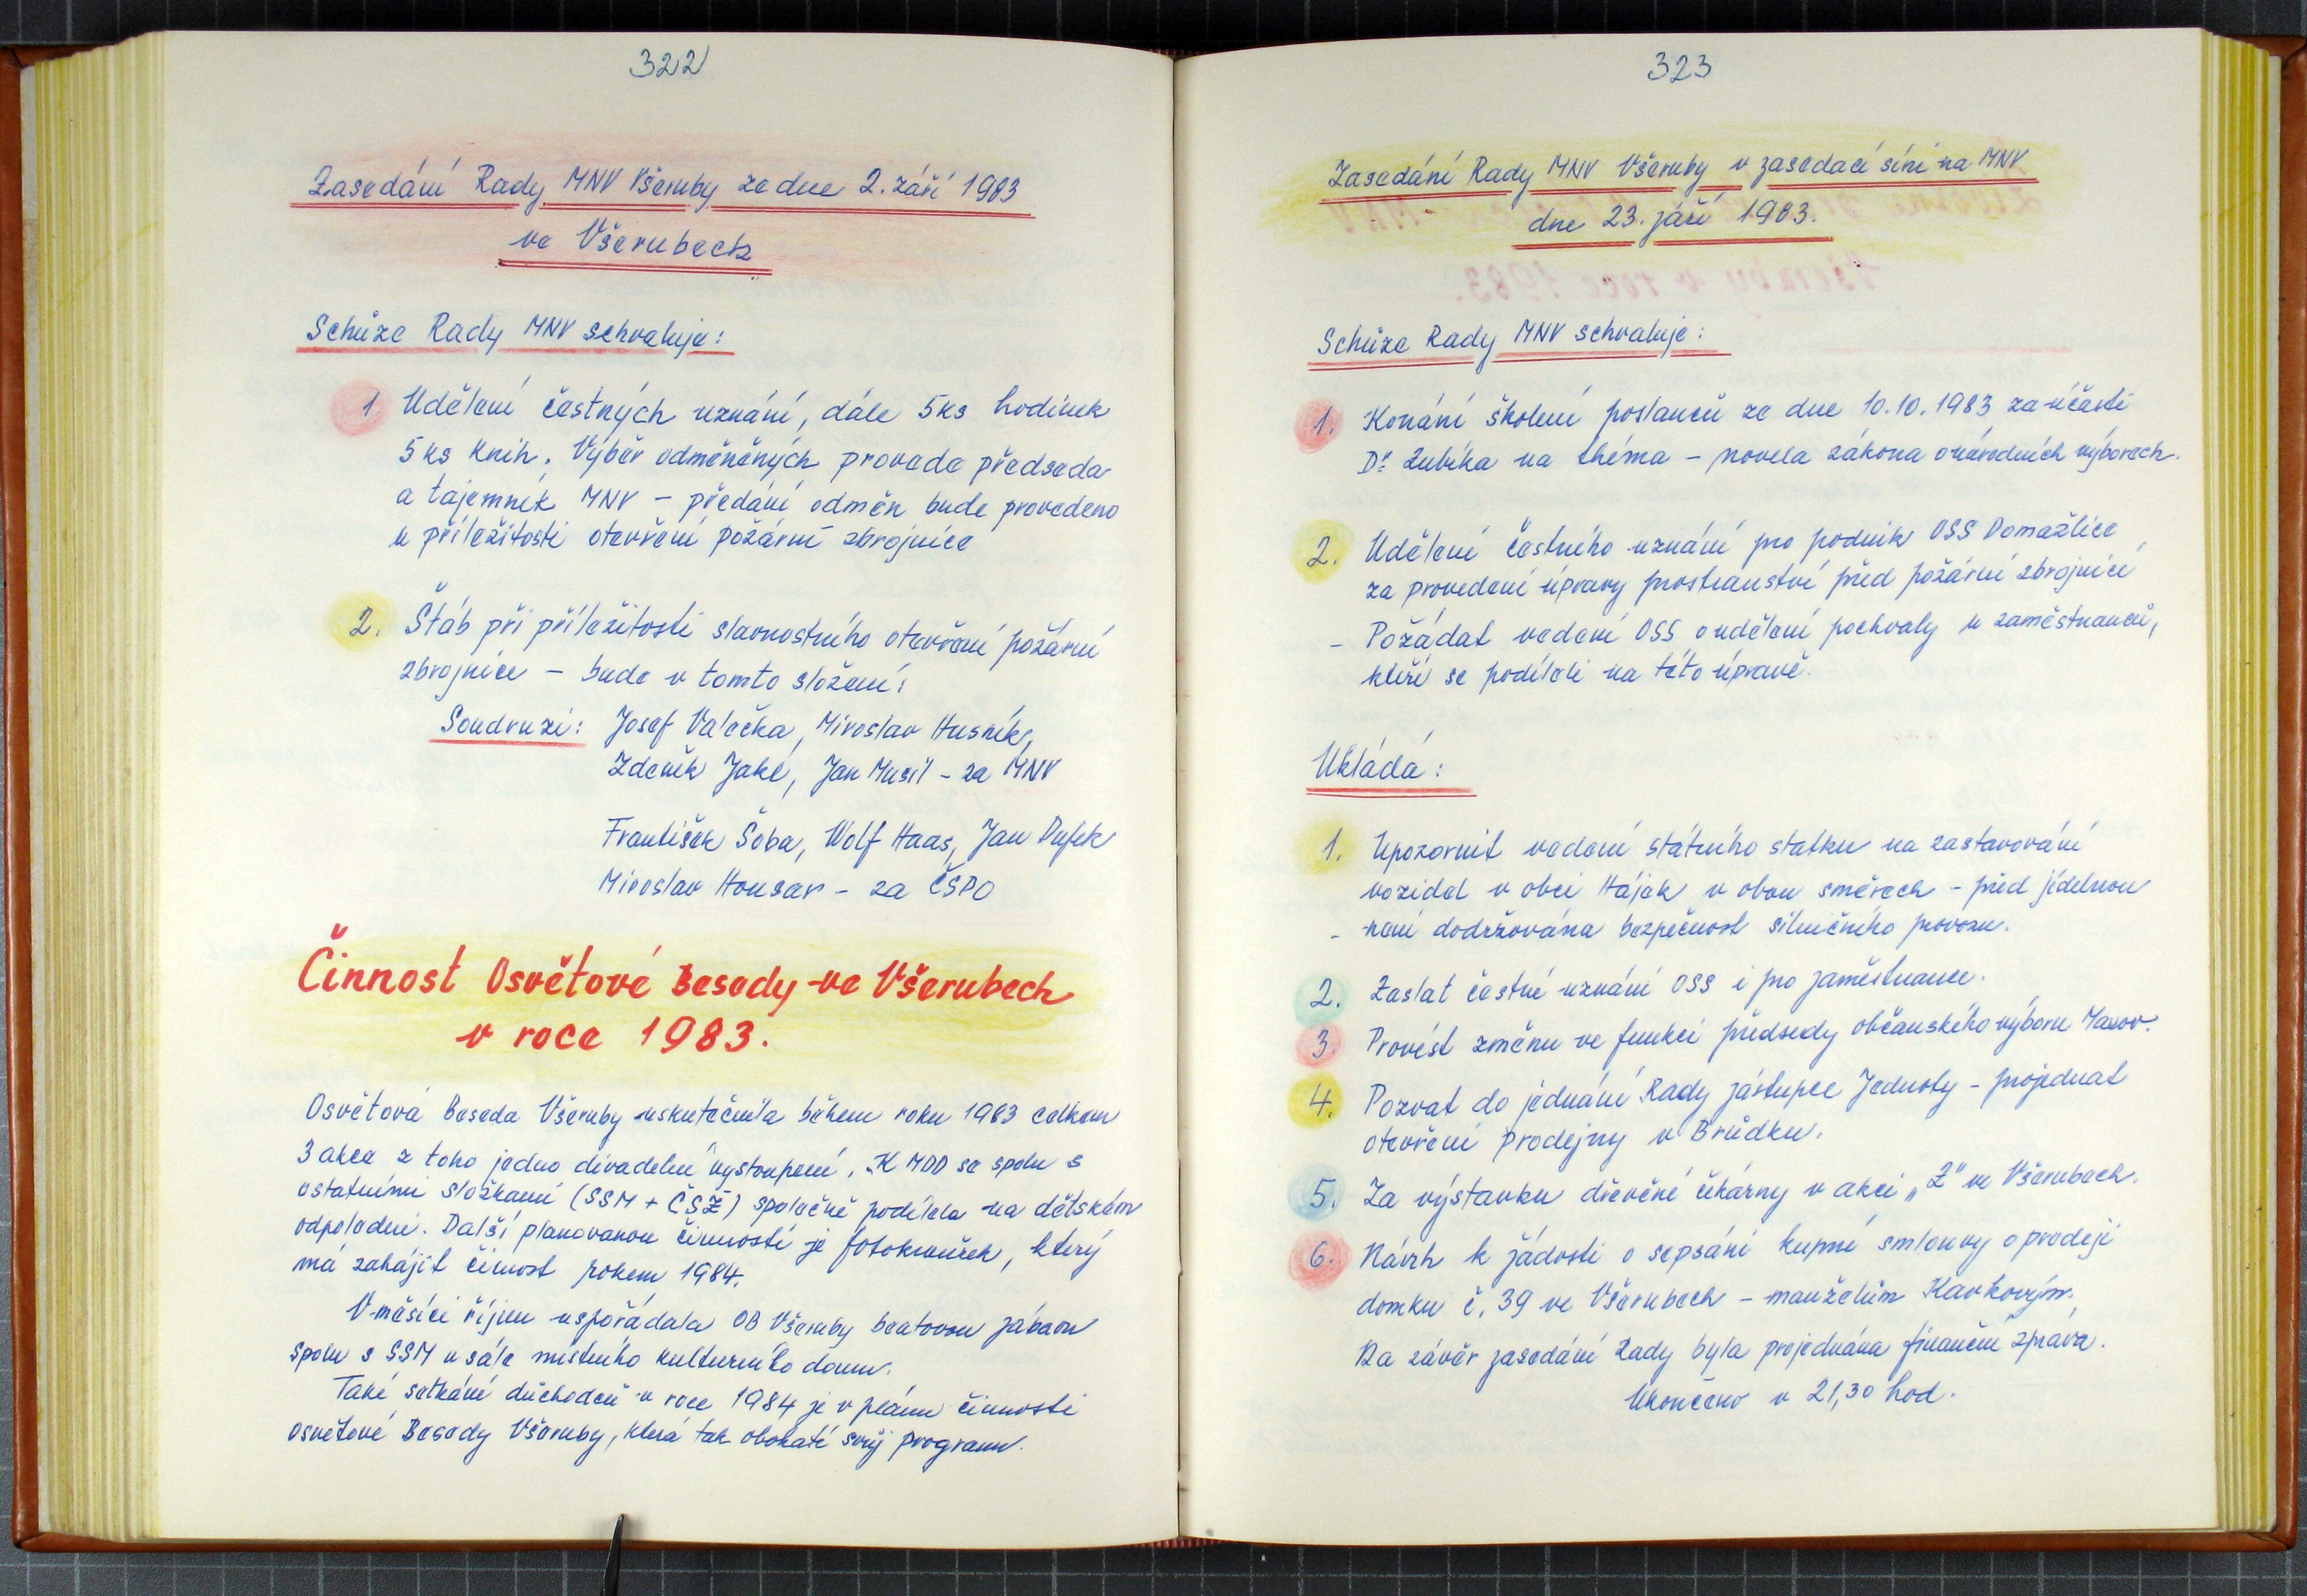 322
Zasedání Rady MNV Všeruby ze dne 2. září 1983
ve Všerubech
Schůze Rady MNV schvaluje:
1 Udělení čestných uznání, dále 5 ks hodinek
5 ks knih. Výběr odměněných provede předseda
a tajemník MNV – předání odměn bude provedeno
u příležitosti otevření požární zbrojnice
2. Štáb při příležitosti slavnostního otevření požární
zbrojnice – bude v tomto složení:
Soudruzi: Josef Valečka, Miroslav Husník,
Zdeněk Jakl, Jan Musil – za MNV
František Šoba, Wolf Haas, Jan Dufek
Miroslav Housar – za ČSPO
Činnost Osvětové Besedy ve Všerubech
v roce 1983.
Osvětová Beseda Všeruby uskutečnila během roku 1983 celkem
3 akce z toho jedno divadelní vystoupení. K MDD se spolu s
ostatními složkami (SSM + ČSŽ) společně podílela na dětském
odpoledni. Další planovanou činností je fotokroužek, který
má zahájit činnost rokem 1984.
V měsíci říjnu uspořádala OB Všeruby beatovou zábavu
spolu s SSM v sále místního kulturního domu.
Také setkání důchodců v roce 1984 je v plánu činnosti
Osvětové Besedy Všeruby, která tak obohatí svůj program.
323
Zasedání Rady MNV Všeruby v zasedací síni na MNV
dne 23. září 1983.
Schůze Rady MNV schvaluje:
1. Konání školení poslanců ze dne 10.10.1983 za účasti
Dr Zubíka na théma – novela zákona o národních výborech.
2. Udělení čestného uznání pro podnik OSS Domažlice
za provedení úpravy prostranství před požární zbrojnicí
- Požádat vedení OSS o udělení pochvaly u zaměstnanců,
kteří se podíleli na této úpravě.
Ukládá:
1. Upozornit vedení státního statku na zastavování
vozidel v obci Hájek v obou směrech – před jídelnou
- není dodržována bezpečnost silničního provozu.
2. Zaslat čestné uznání OSS i pro zaměstnance.
3. Provést změnu ve funkci předsedy občanského výboru
4. Pozvat do jednání Rady zástupce Jednoty – projednat
otevření prodejny v Brůdku.
5. Za výstavku dřevěné čekárny v akci „Z" ve Všerubech.
6. Návrh k žádosti o sepsání kupní smlouvy o prodeji
domku č. 39 ve Všerubech – manželům Kavkovým.
Na závěr zasedání Rady byla projednána finanční zpráva.
Ukončeno v 21,30 hod.